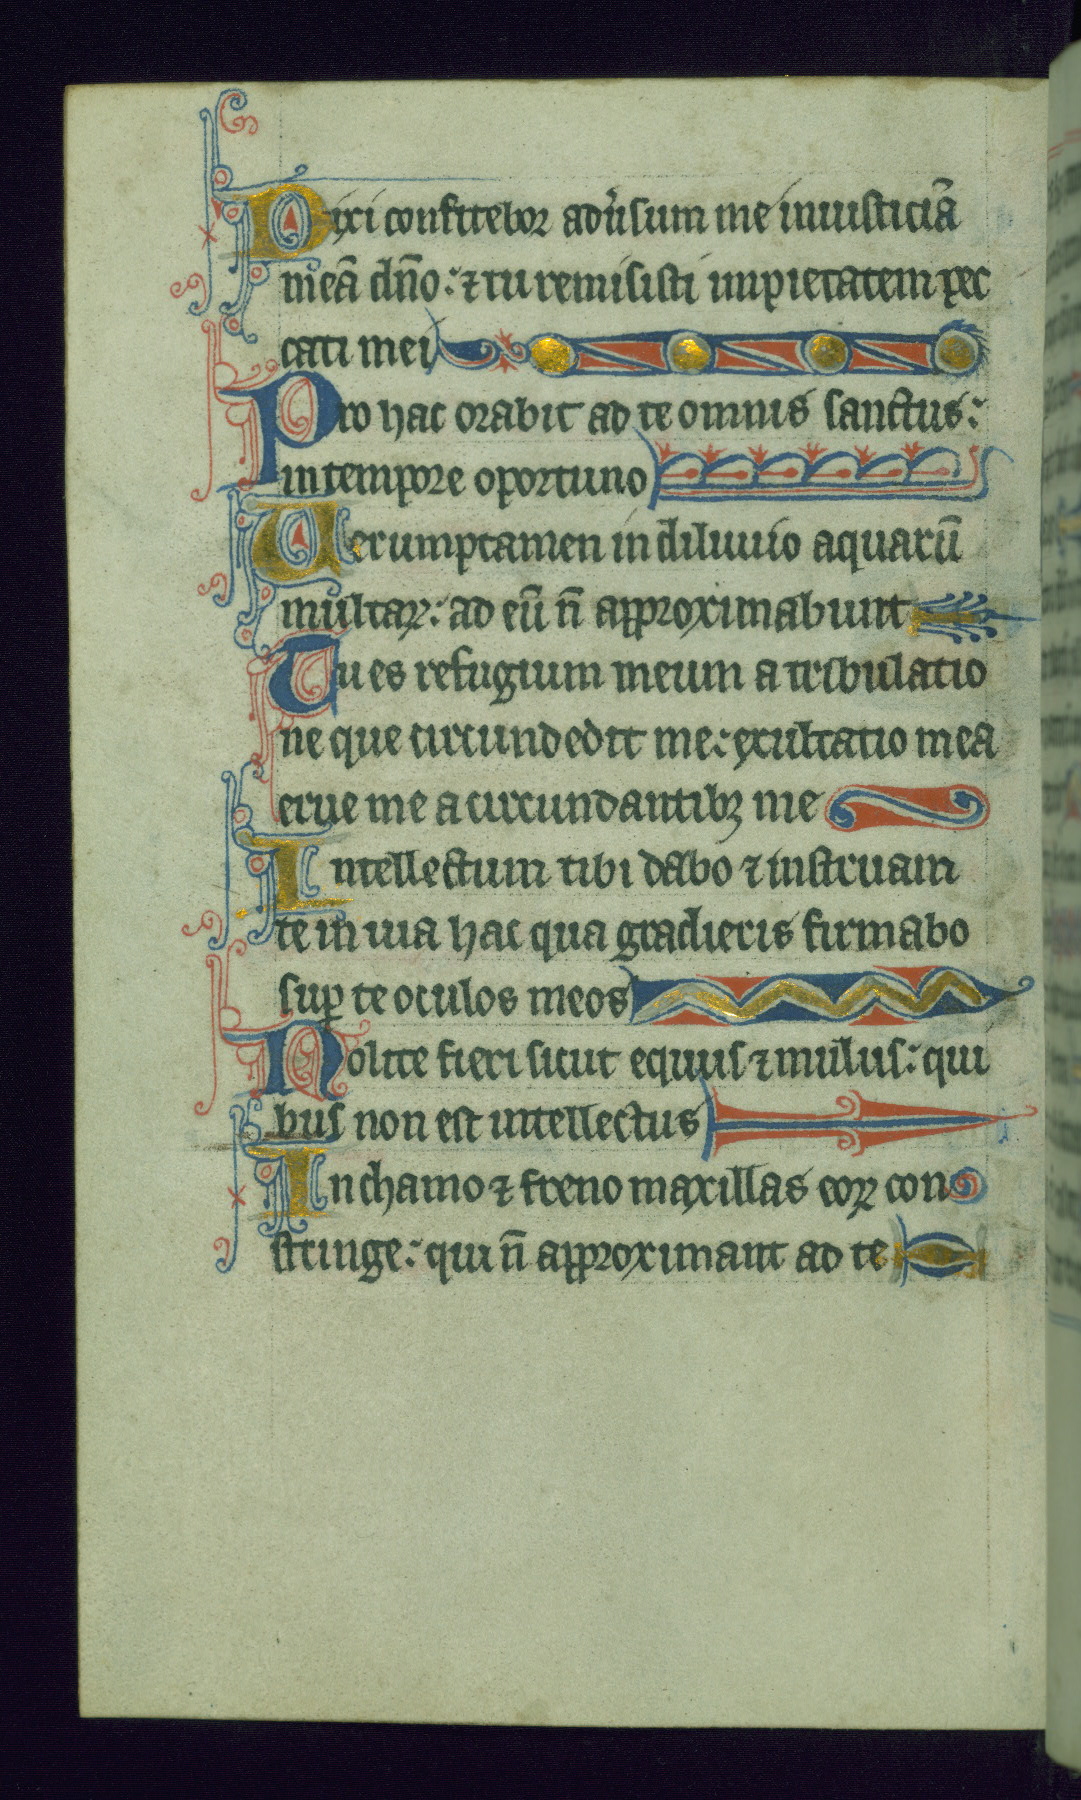 Dixi confitebor adu̾sum me iniusticiā
meā dn̄o: ⁊ tu remisisti impietatem pec
cati mei
Pro hac orabit ad te omnis sanctus:
in tempore oportuno
Uerumptamen in diluuio aquarū
multaꝝ: ad eū n̄ approximabunt
Tu es refugium meum a tribulatio
ne que circundedit me: exultatio mea
erue me a circundantibꝫ me
Intellectum tibi dabo ⁊ instruam
te in uia hac qua gradieris firmabo
suꝑ te oculos meos
Nolite fieri sicut equus ⁊ mulus: qui
bus non est intellectus
In chamo ⁊ freno maxillas eoꝝ con
stringe: qui n̄ approximant ad te